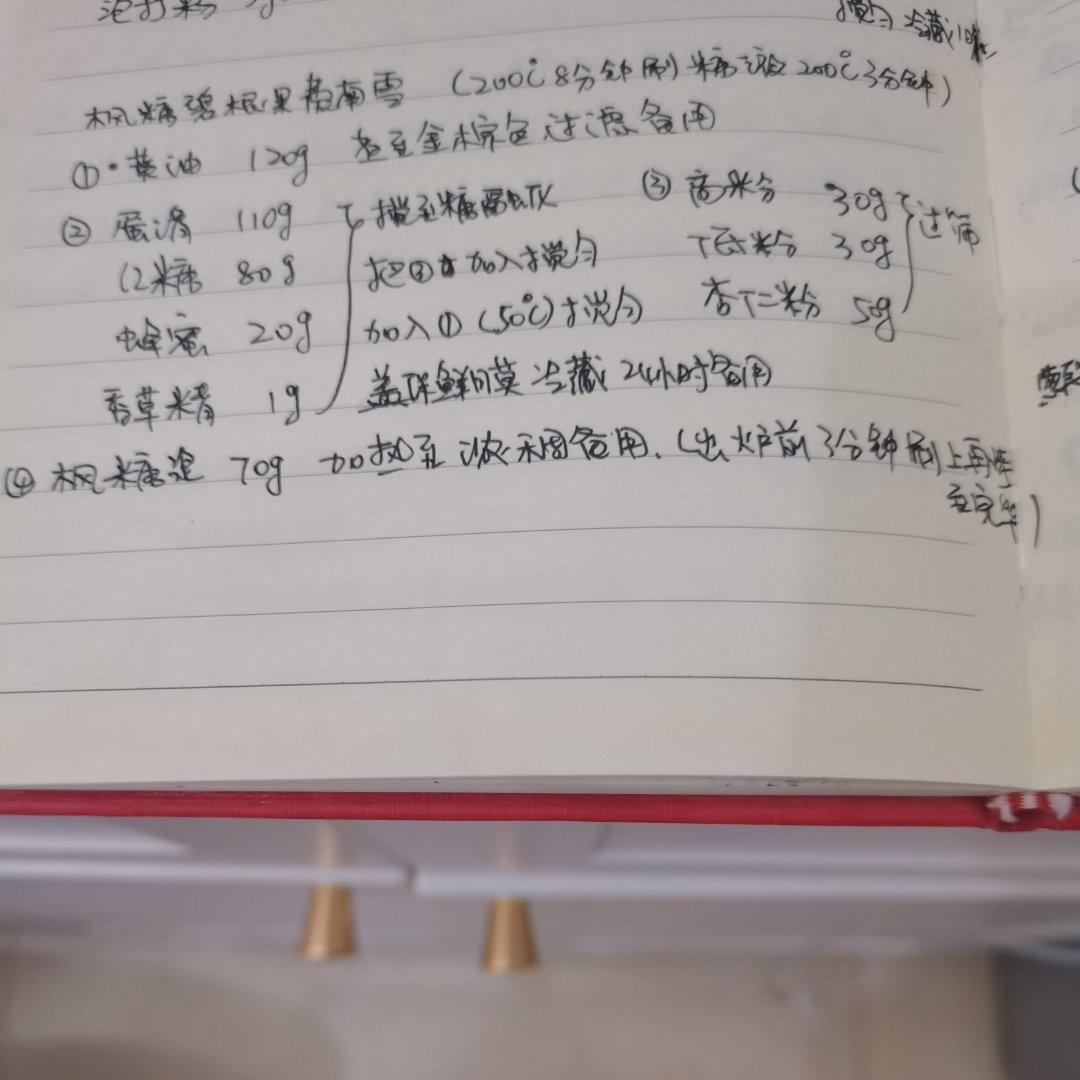 泡打粉
搅匀 冷藏1晚
枫糖碧根果费南雪 (200℃ 8分钟 刷枫糖浆 200℃ 3分钟)
①·黄油 120g 煮至金棕色过滤备用
② 蛋清 110g 搅至糖融化 ③ 高粉 30g 过筛
红糖 80g 把③加入搅匀 低粉 30g
蜂蜜 20g 加入①(50℃)搅匀 杏仁粉 50g
香草精 1g 盖保鲜膜 冷藏 24小时备用
④ 枫糖浆 70g 加热至浓稠备用.(出炉前3分钟刷上再烤
至完毕)